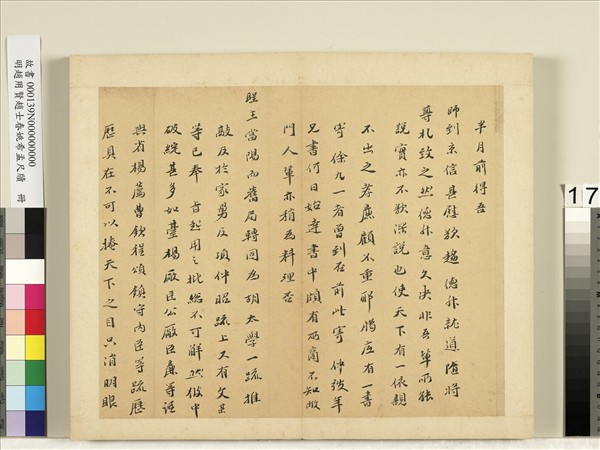 17
故書 000139N000000000
明趙用賢趙士春姚希孟尺牘 冊
半月前得吾
師到京信甚慰欲 德於軌道隨將
尊札致之然德於意久決非吾輩所能
說實亦不欲深說也使天下有一依親
不出之孝廉顧不重耶 應有一書
寄 徐九一者曾到否前此寄 仲馭年
兄書何日始達書中頗有所商不知敝
門人輩亦稍為料理否
聖王當陽而舊局轉固為胡太學一疏推
敲反於家 反項 疏上又有
等已奉 旨起用之批總不可解然彼中
破綻甚多如臺楊厰臣公厰臣廉等語
與省楊 曹欽程頌鎮守內臣等疏歷
歷具在不可以掩天下之目只消明眼